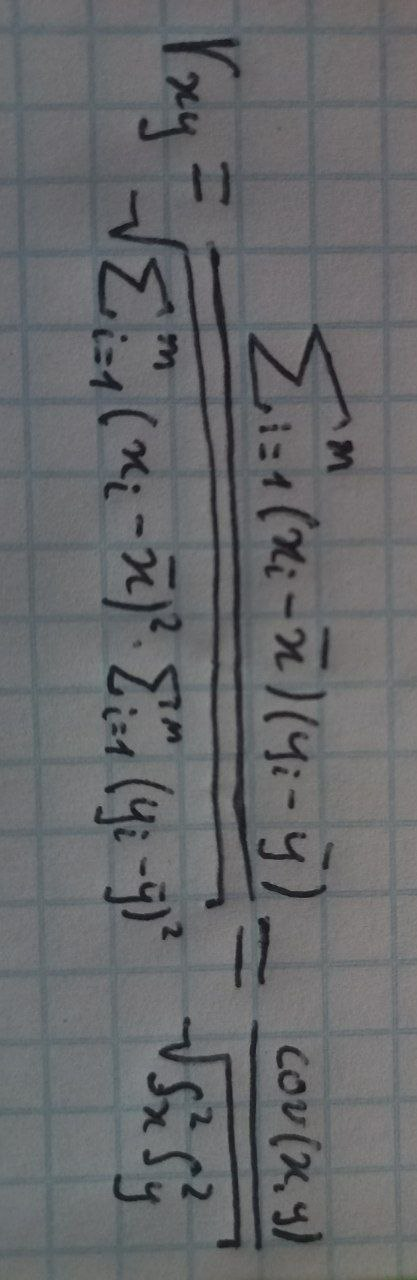 r_{xy} = \frac{\sum_{i=1}^{m} (x_i - \bar{x})(y_i - \bar{y})}{\sqrt{\sum_{i=1}^{m} (x_i - \bar{x})^2 \cdot \sum_{i=1}^{m} (y_i - \bar{y})^2}} = \frac{cov(x,y)}{\sqrt{s_x^2 s_y^2}}